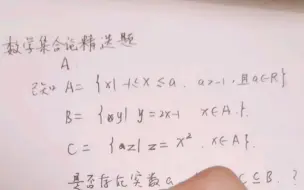 数学集合论精选题
A.
已知 A = {x | -1 ≤ x ≤ a, a > -1, 且 a∈R}
B = {y | y = 2x-1, x∈A.}
C = {z | z = x², x∈A}
是否存在实数 a C ⊆ B. ?